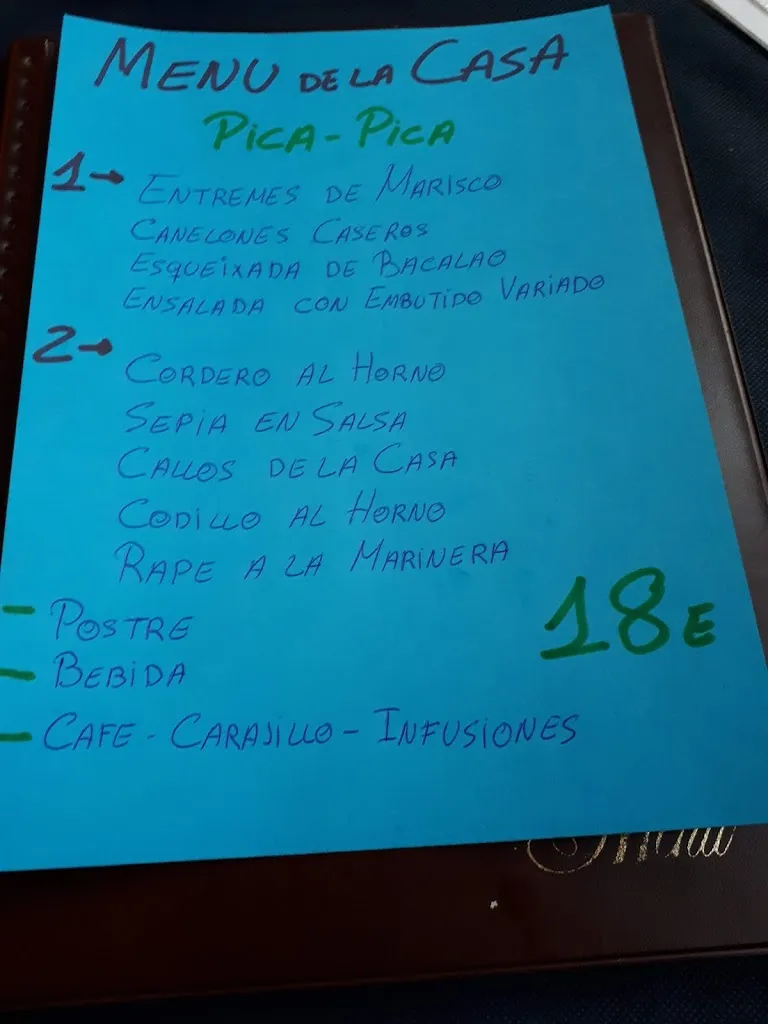 MENU DE LA CASA
PICA-PICA
1→ ENTREMES DE MARISCO
CANELONES CASEROS
ESQUEIXADA DE BACALAO
ENSALADA CON EMBUTIDO VARIADO
2→ CORDERO AL HORNO
SEPIA EN SALSA
CALLOS DE LA CASA
CODILLO AL HORNO
RAPE A LA MARINERA
- POSTRE
18E
- BEBIDA
- CAFE - CARAJILLO - INFUSIONES
Menu